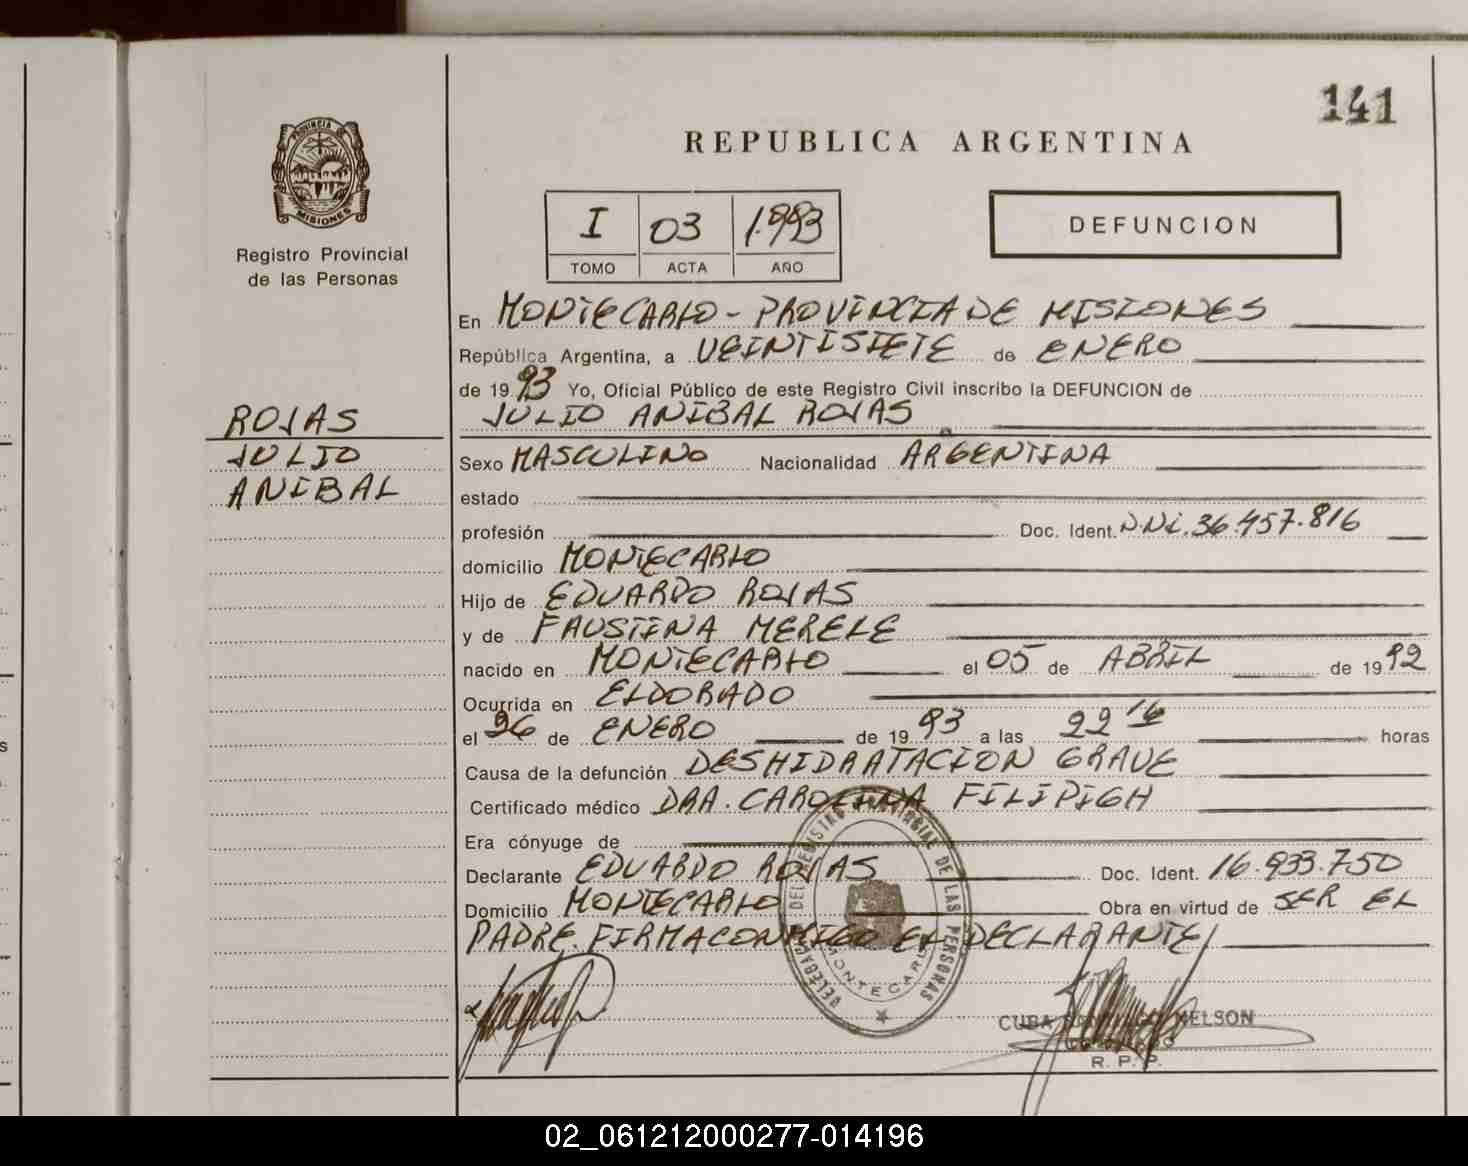 141
REPUBLICA ARGENTINA
PROVINCIA DE
MISIONES
Registro Provincial
de las Personas
I 03 1.993
TOMO ACTA AÑO
DEFUNCION
En MONTECARLO - PROVINCIA DE MISIONES
República Argentina, a VEINTISIETE de ENERO
de 1993 Yo, Oficial Público de este Registro Civil inscribo la DEFUNCION de
JULIO ANIBAL ROJAS
ROJAS
JULIO
ANIBAL
Sexo MASCULINO Nacionalidad ARGENTINA
estado
profesión Doc. Ident. D.N.I. 36.457.816
domicilio MONTECARLO
Hijo de EDUARDO ROJAS
y de FAUSTINA MERELE
nacido en MONTECARLO el 05 de ABRIL de 1992
Ocurrida en ELDORADO
el 26 de ENERO de 1993 a las 22 16 horas
Causa de la defunción DESHIDRATACION GRAVE
Certificado médico DRA. CAROLINA FILIPIGH
Era cónyuge de
Declarante EDUARDO ROJAS Doc. Ident. 16.933.750
Domicilio MONTECARLO Obra en virtud de SER EL
PADRE. FIRMA CONMIGO EL DECLARANTE
DEL REGISTRO PROVINCIAL DE LAS PERSONAS
MONTECARLO
CUBA NELSON
R. P. P.
02_061212000277-014196